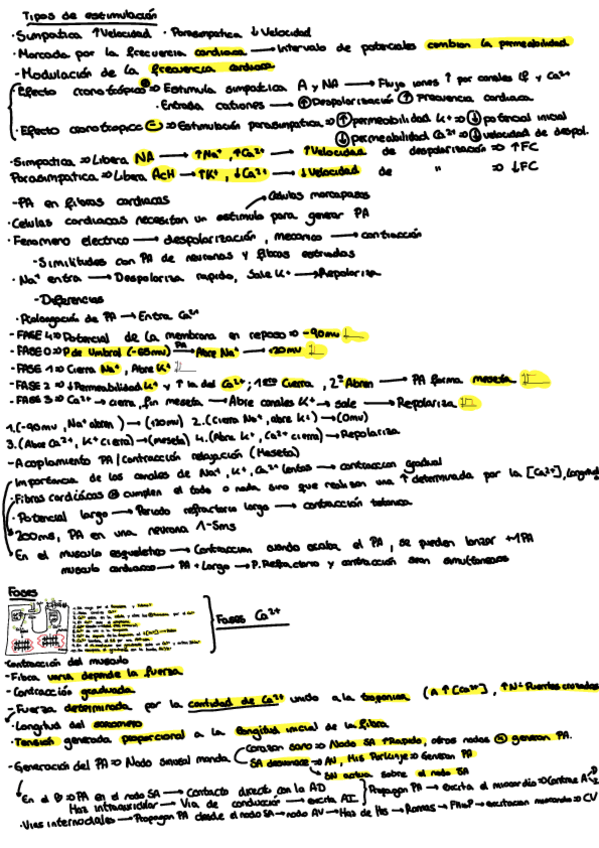 Tipos de estimulación
· Simpatica ↑Velocidad · Parasimpatica ↓Velocidad
· Marcada por la frecuencia cardiaca → Intervalo de potenciales cambian la permeabilidad
- Modulación de la frecuencia cardiaca
· Efecto cronotrópico ⇒ Estimula simpatica A y NA → Flujo iones ↑ por canales If y Ca²⁺
· Entrada cationes → ↑Despolarización ↑ Frecuencia cardiaca
· Efecto cronotropico (-) ⇒ Estimulación parasimpatica ⇒ ↑permeabilidad K⁺ ⇒ ↓ potencial inicial
↓permeabilidad Ca²⁺ ⇒ ↓ velocidad de despol.
· Simpatica ⇒ Libera NA → ↑Na⁺, ↑Ca²⁺ → ↑Velocidad de despolarización ⇒ ↑FC
Parasimpatica ⇒ Libera AcH → ↑K⁺, ↓Ca²⁺ → ↓Velocidad de " ⇒ ↓FC
- PA en fibras cardiacas
Celulas marcapasos
· Celulas cardiacas necesitan un estimulo para generar PA
· Fenomeno electrico → despolarización, mecanico → contracción
- Similitudes con PA de neuronas y fibras estriadas
· Na⁺ entra → Despolariza rapido, Sale K⁺ → Repolariza
- Diferencias
· Prolongación de PA → Entra Ca²⁺
- FASE 4 ⇒ Potencial de la membrana en reposo ⇒ -90mv
- FASE 0 ⇒ P de Umbral (-65mv) PA → Abre Na⁺ → +20mv
- FASE 1 ⇒ Cierra Na⁺, Abre K⁺
- FASE 2 ⇒ ↓Permeabilidad K⁺ y ↑ la del Ca²⁺; 1ero Cierra, 2º Abren → PA forma meseta
- FASE 3 ⇒ Ca²⁺ → cierra, fin meseta → Abre canales K⁺ → sale → Repolariza
1.(-90mv, Na⁺ abren) → (+20mv) 2.(Cierra Na⁺, abre K⁺) → (0mv)
3.(Abre Ca²⁺, K⁺ cierra) → (meseta) 4.(Abre K⁺, Ca²⁺ cierra) → Repolariza
- Acoplamiento PA/Contracción relajación (Meseta)
· Importancia de los canales de Na⁺, K⁺, Ca²⁺ lentos → contraccion gradual
· Fibras cardiacas cumplen el todo o nada, sino que realizan una ↑ determinada por la [Ca²⁺], longitud
· Potencial largo → Periodo refractario largo → contracción tetanica
200ms, PA en una neurona 1-5ms
En el musculo esqueletico → Contraccion cuando acaba el PA, se pueden lanzar +1PA
musculo cardiaco → PA + Largo → P. Refractario y contracción sean simultaneos
Fases
Fases Ca²⁺
· Contracción del musculo
- Fibra varia depende la fuerza
- Contracción graduada
- Fuerza determinada por la cantidad de Ca²⁺ unido a la troponina (A ↑[Ca²⁺], ↑Nº Puentes cruzados
· Longitud del sarcomero
· Tensión generada proporcional a la longitud inicial de la fibra
Corazon sano ⇒ Nodo SA ↑Rapido, otros nodos generan PA.
- Generación del PA ⇒ Nodo sinusal manda
SA desconecte ⇒ AV, His Purkinje ⇒ Generan PA
SN actua sobre el nodo SA
En el ⇒ PA en el nodo SA → Contacto directo con la AD
Haz intrauricular → Via de conducción → excita AI
Propagan PA → excita el miocardio ⇒ Contrae A
· Vias internodales → Propagan PA desde el nodo SA → nodo AV → Haz de His → Ramas → → excitacion miocardio ⇒ CV